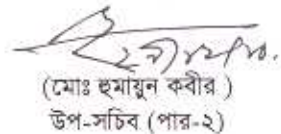 (মোঃ হুমায়ুন কবীর )
উপ-সচিব (পার-২)